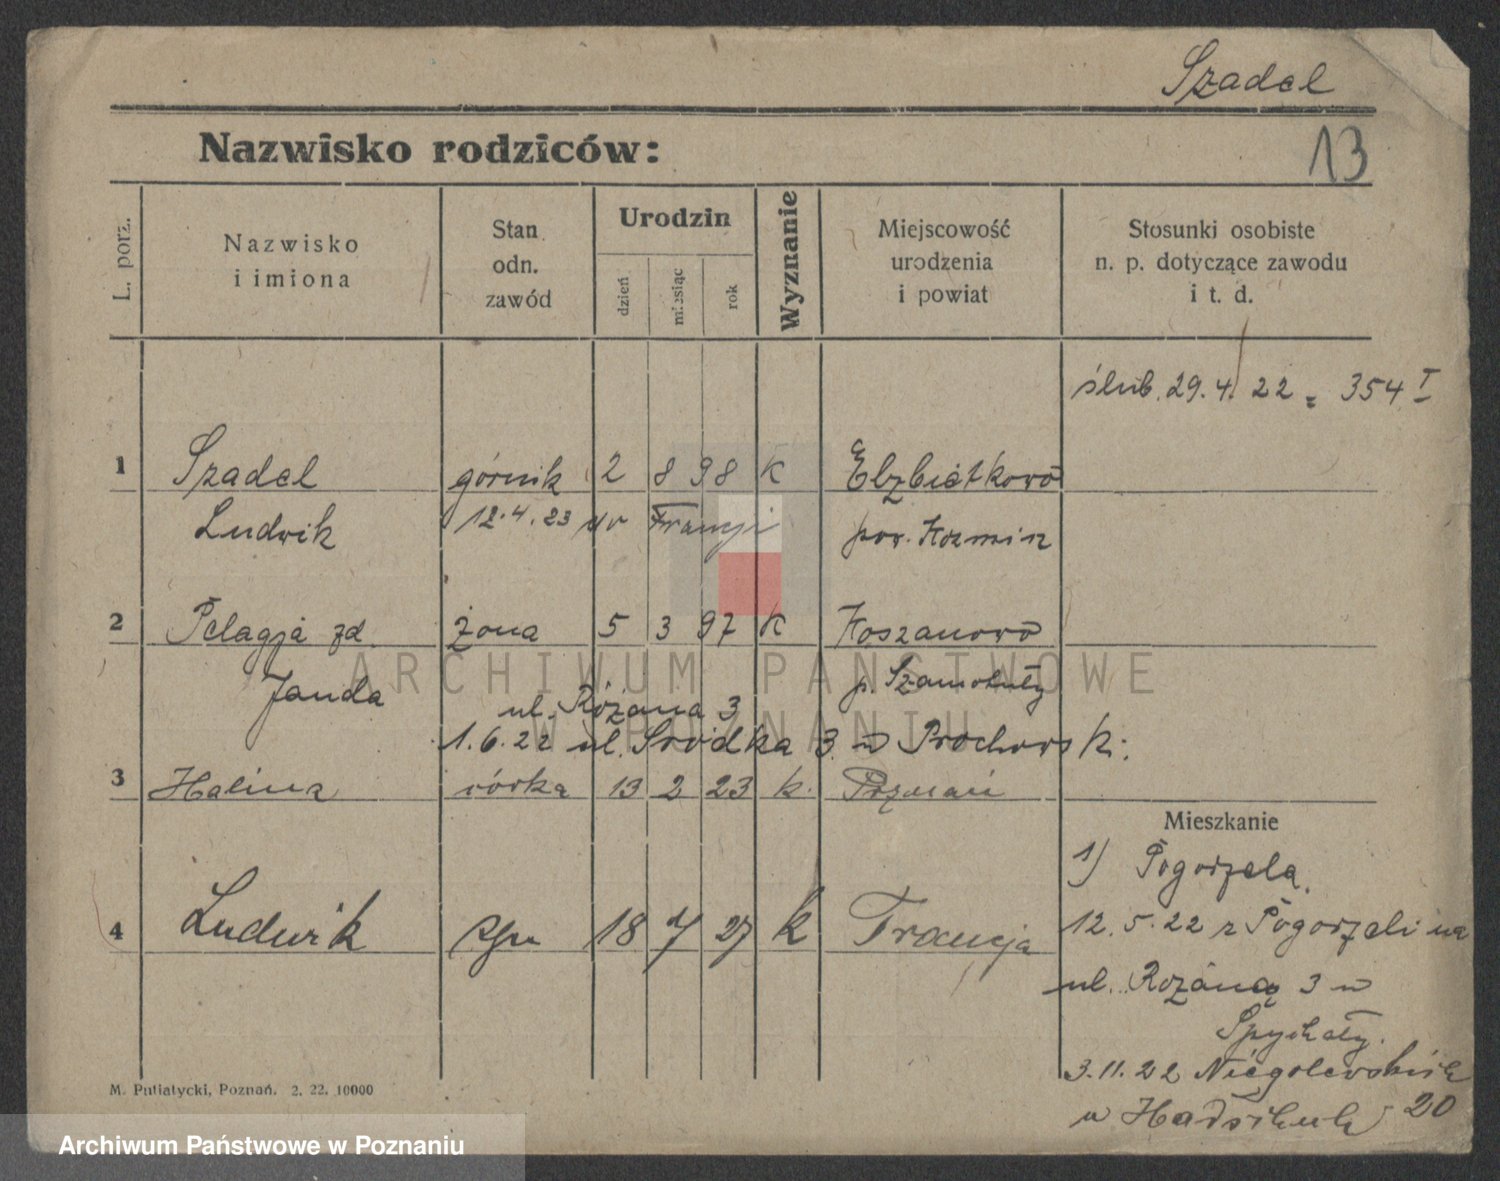 Szadel
13
Nazwisko rodziców:
L. porz.
Nazwisko
i imiona
Stan
odn.
zawód
Urodzin
dzień
miesiąc
rok
Wyznanie
Miejscowość
urodzenia
i powiat
Stosunki osobiste
n. p. dotyczące zawodu
i t. d.
ślub. 29.4. 22 = 354 I
1 Szadel górnik 2 8 98 k Elżbietkowo
Ludwik 12.4.23 do Francji pow. Kozmin
2 Pelagja zd. żona 5 3 97 k Koszanowo
Janda p. Szamotuły
ul. Różana 3
1.6.22 ul. Srodka 3 u Prochorski
3 Halina córka 13 2 23 k. Poznań
Mieszkanie
1) Pogorzela.
4 Ludwik syn 18 7 27 k Francja
12.5.22 z Pogorzeli na
ul. Rozana 3 u
Spychały.
3.11.22 Niegolewskich
u 20
M. Putiatycki, Poznań. 2. 22. 10000
ARCHIWUM PAŃSTWOWE
W POZNANIU
Archiwum Państwowe w Poznaniu